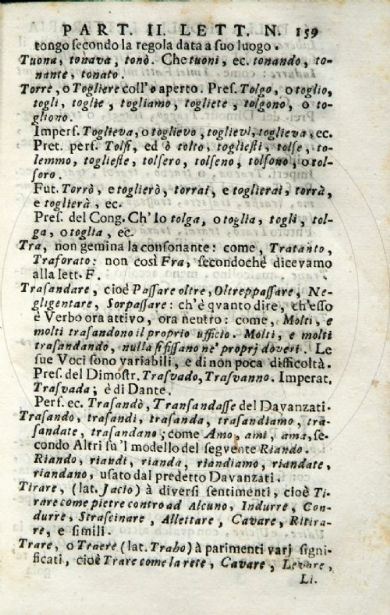 PART. II. LETT. N. 159
tongo secondo la regola data a suo luogo.
Tuona, tonava, tonò. Che tuoni, ec. tonando, to-
nante, tonato.
Torre, o Togliere coll'o aperto. Pres. Tolgo, o toglio,
togli, toglie, togliamo, togliete, tolgono, o to-
gliono.
Imperf. Toglieva, o toglievo, toglievi, toglieva, ec.
Pret. perf. Tolsi, ed ò tolto, togliesti, tolse, to-
lemmo, togliesse, tolsero, tolseno, tolsono, o tol-
soro.
Fut. Torrò, e toglierò, torrai, e toglierai, torrà,
e toglierà, ec.
Pres. del Cong. Ch'Io tolga, o toglia, togli, tol-
ga, o toglia, ec.
Tra, non gemina la consonante: come, Tratanto,
Traforato: non così Fra, secondochè dicevamo
alla lett. F.
Trasandare, cioè Passare oltre, Oltreppassare, Ne-
gligentare, Sorpassare: ch'è qvanto dire, ch'esso
è Verbo ora attivo, ora neutro: come, Molti, e
molti trasandono il proprio ufficio. Molti, e molti
trasandando, nulla si fissano ne' proprj doveri. Le
sue Voci sono variabili, e di non poca difficoltà.
Pres. del Dimostr. Trasvado, Trasvanno. Imperat.
Trasvada; è di Dante.
Perf. ec. Trasandò, Transandasse del Davanzati.
Trasando, trasandi, trasanda, trasandiamo, tra-
sandate, trasandano; come Amo, ami, ama, se-
condo Altri su'l modello del segvente Riando.
Riando, riandi, rianda, riandiamo, riandate,
riandano, usato dal predetto Davanzati.
Tirare, (lat. Jacio) à diversi sentimenti, cioè Ti-
rare come pietre contro ad Alcuno, Indurre, Con-
durre, Strascinare, Allettare, Cavare, Ritira-
re, e simili.
Trare, o Traere (lat. Traho) à parimenti varj signi-
ficati, cioè Trare come la rete, Cavare, Levare,
Li.